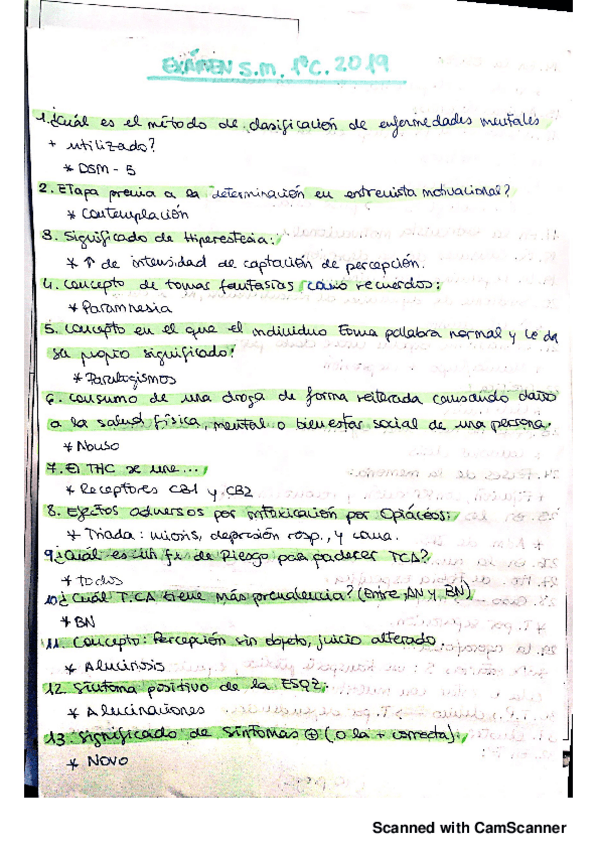 EXÁMEN S.M. 1ºC. 2019
1. ¿Cuál es el método de clasificación de enfermedades mentales
+ utilizado?
* DSM - 5
2. Etapa previa a la determinación en entrevista motivacional?
* Contemplación
3. Significado de Hiperestesia:
* ↑ de intensidad de captación de percepción.
4. Concepto de tomar fantasías como recuerdos:
* Paramnesia
5. Concepto en el que el individuo toma palabra normal y le da
su propio significado:
* Paralogismos
6. Consumo de una droga de forma reiterada causando daño
a la salud física, mental o bienestar social de una persona.
* Abuso
7. El THC se une...
* Receptores CB1 y CB2
8. Efectos adversos por intoxicación por Opiáceos:
* Triada: miosis, depresión resp., y coma.
9. ¿Cuál es un f. de Riesgo para padecer TCA?
* todos
10. ¿Cuál T.CA tiene más prevalencia? (Entre AN y BN)
* BN
11. Concepto: Percepción sin objeto, juicio alterado.
* Alucinosis
12. Síntoma positivo de la ESQZ:
* Alucinaciones
13. Significado de Síntomas ⊕ (o la + correcta):
* NOVO
Scanned with CamScanner